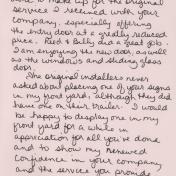 want to make up for the original
service I received with your
company, especially offering
the entry door at a greatly reduced
price. Reed & Billy did a great job.
I am enjoying the new door, as well
as the windows and sliding glass
doors.
The original installers never
asked about placing one of your signs
in my front yard, although they did
have one on their trailer. I would
be happy to display one in my
front yard for a while in
appreciation for all you've done
and to show my renewed
confidence in your company
and the service you provide